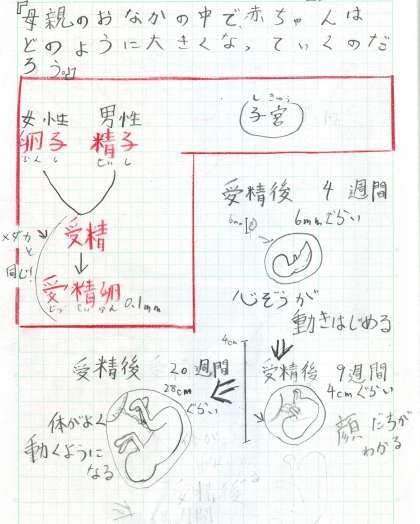 『母親のおなかの中で、赤ちゃんは
どのように大きくなっていくのだ
ろう。』
女性 男性
卵子 精子
らんし せいし
しきゅう
子宮
メダカ
と
同じ!
受精
受精卵 0.1mm
じゅせいらん
受精後 4週間
6mmぐらい
6mm
心ぞうが
動きはじめる
受精後 9週間
4cmぐらい
4cm
顔だちが
わかる
受精後 20週間
28cm
ぐらい
体がよく
動くように
なる